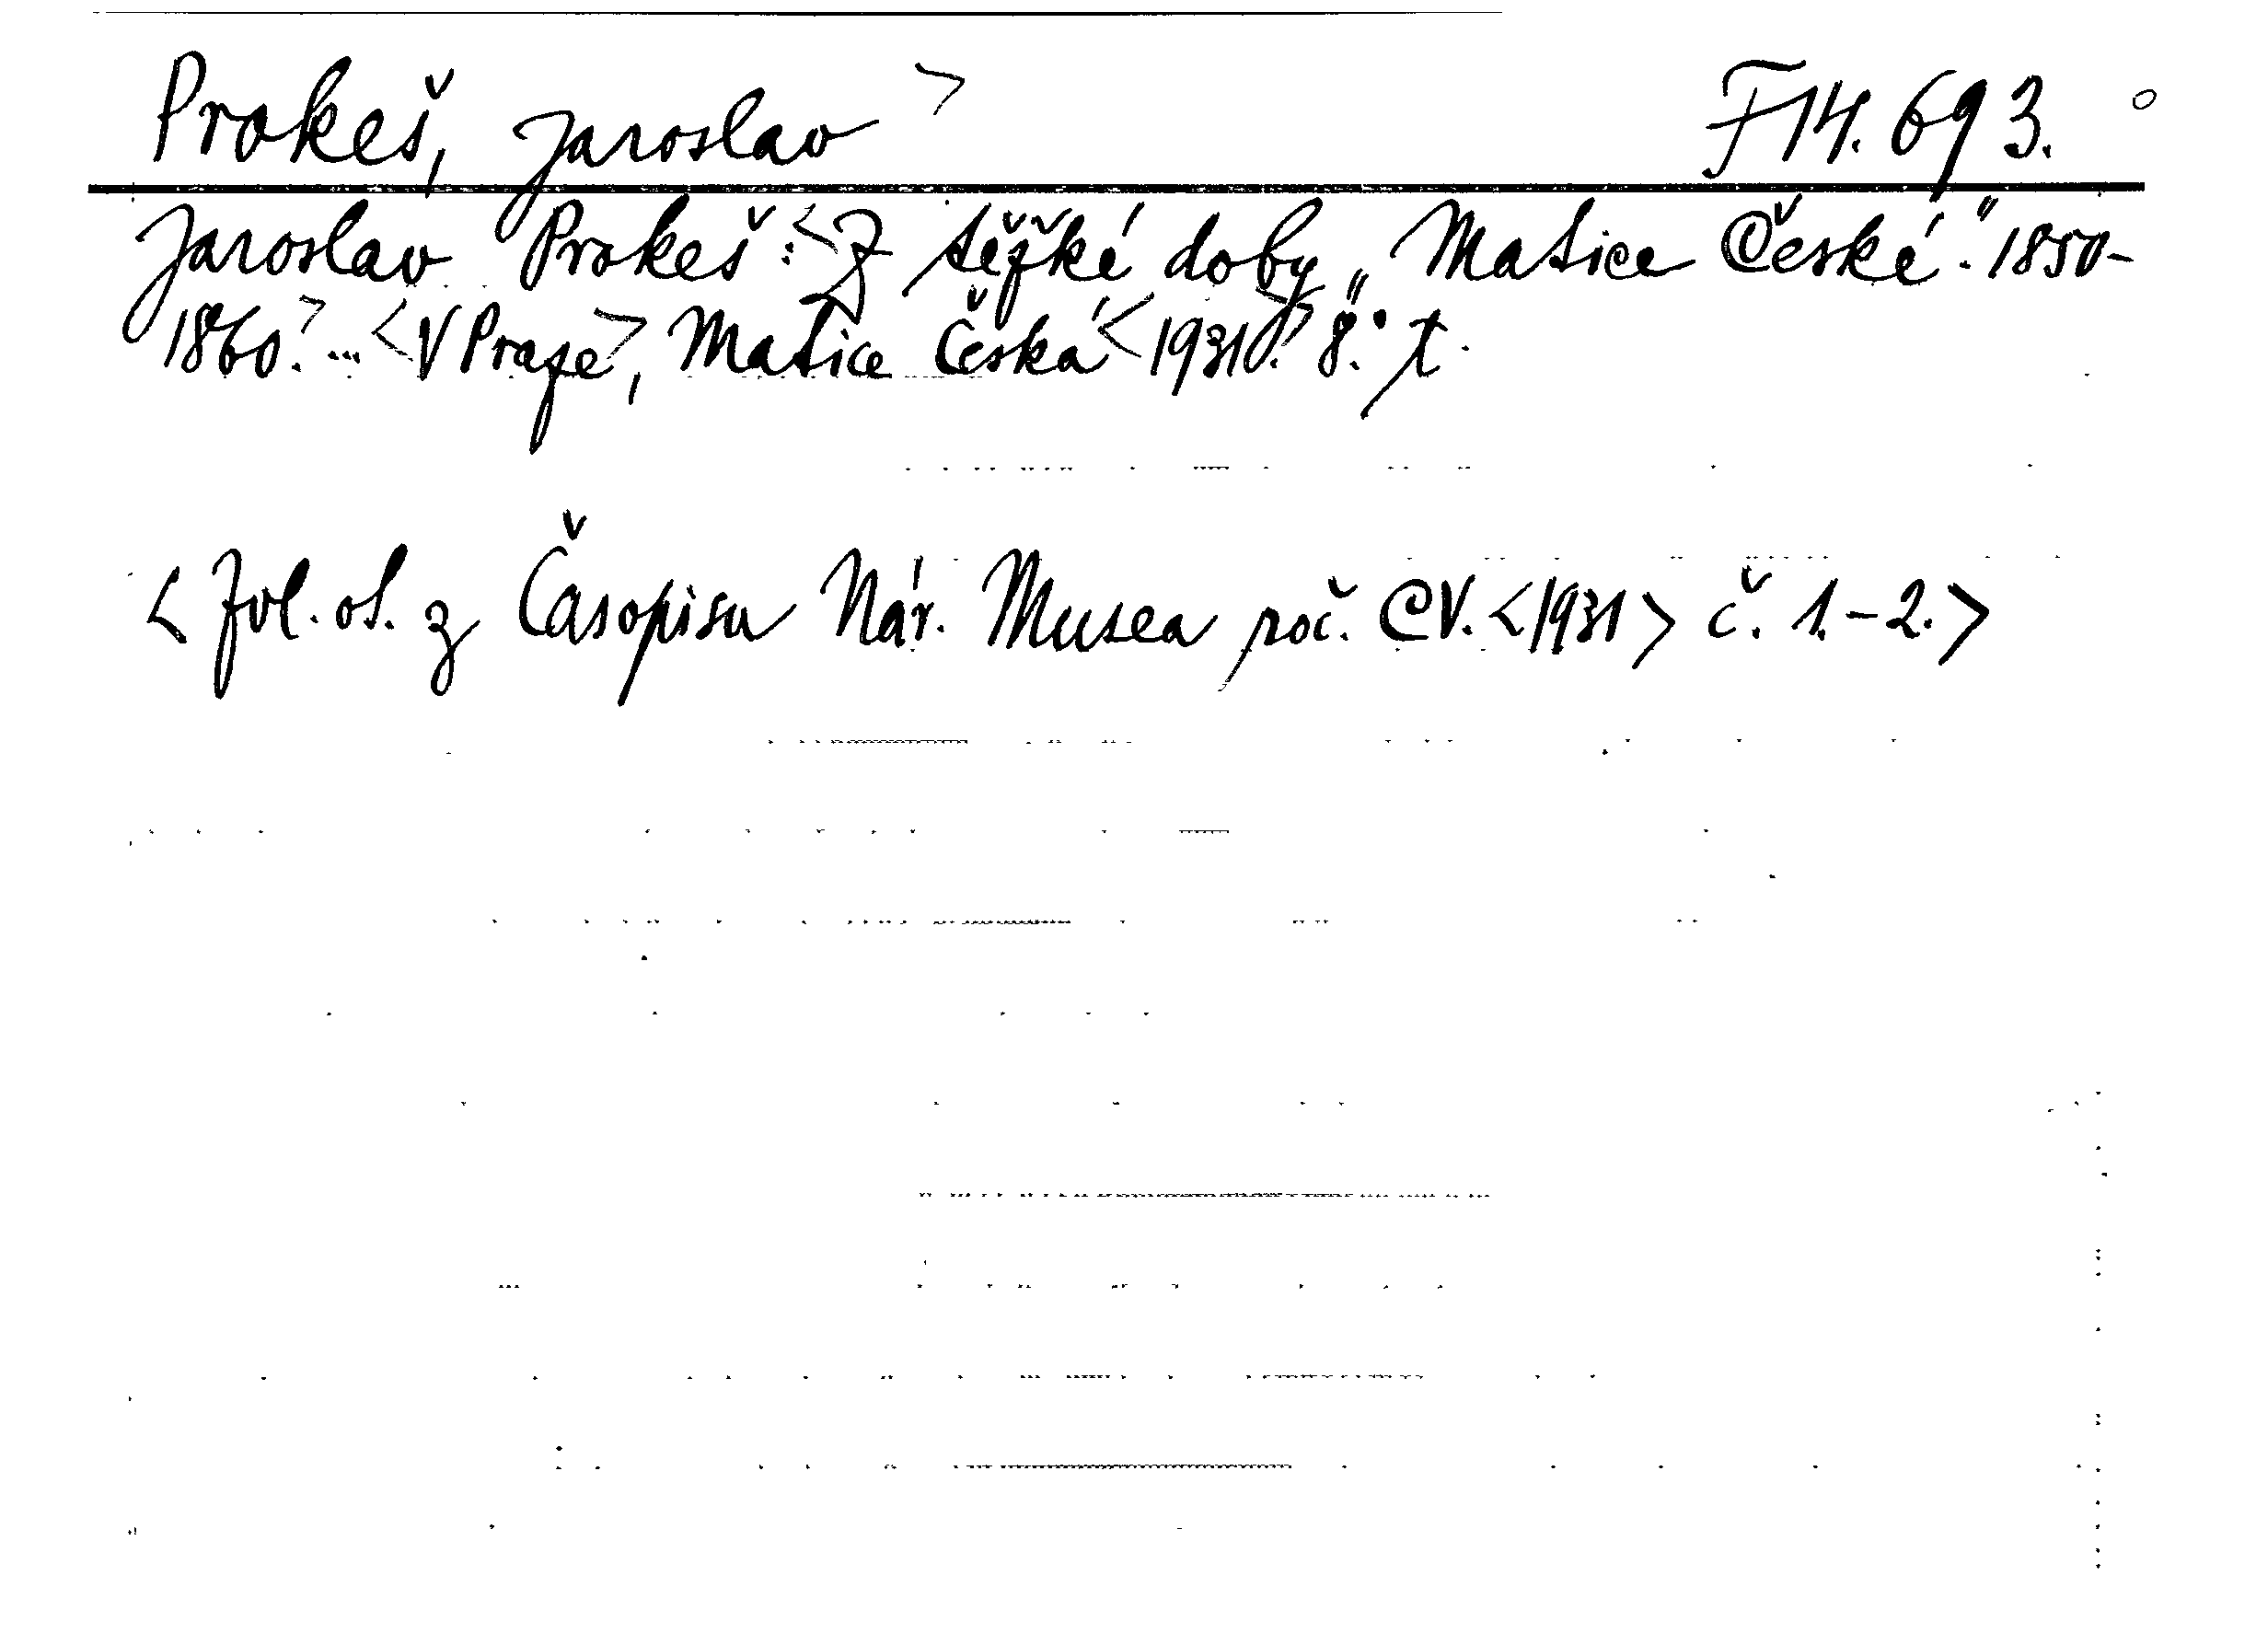 Prokeš, Jaroslav > F 14.693.
Jaroslav Prokeš: < Z těžké doby „Matice České.“ 1850-
1860.> ... < V Praze >, Matice Česká < 1931 >. 8.° t.
< Zvl. ot. z Časopisu Nár. Musea roč. CV. < 1931 > č. 1.-2. >